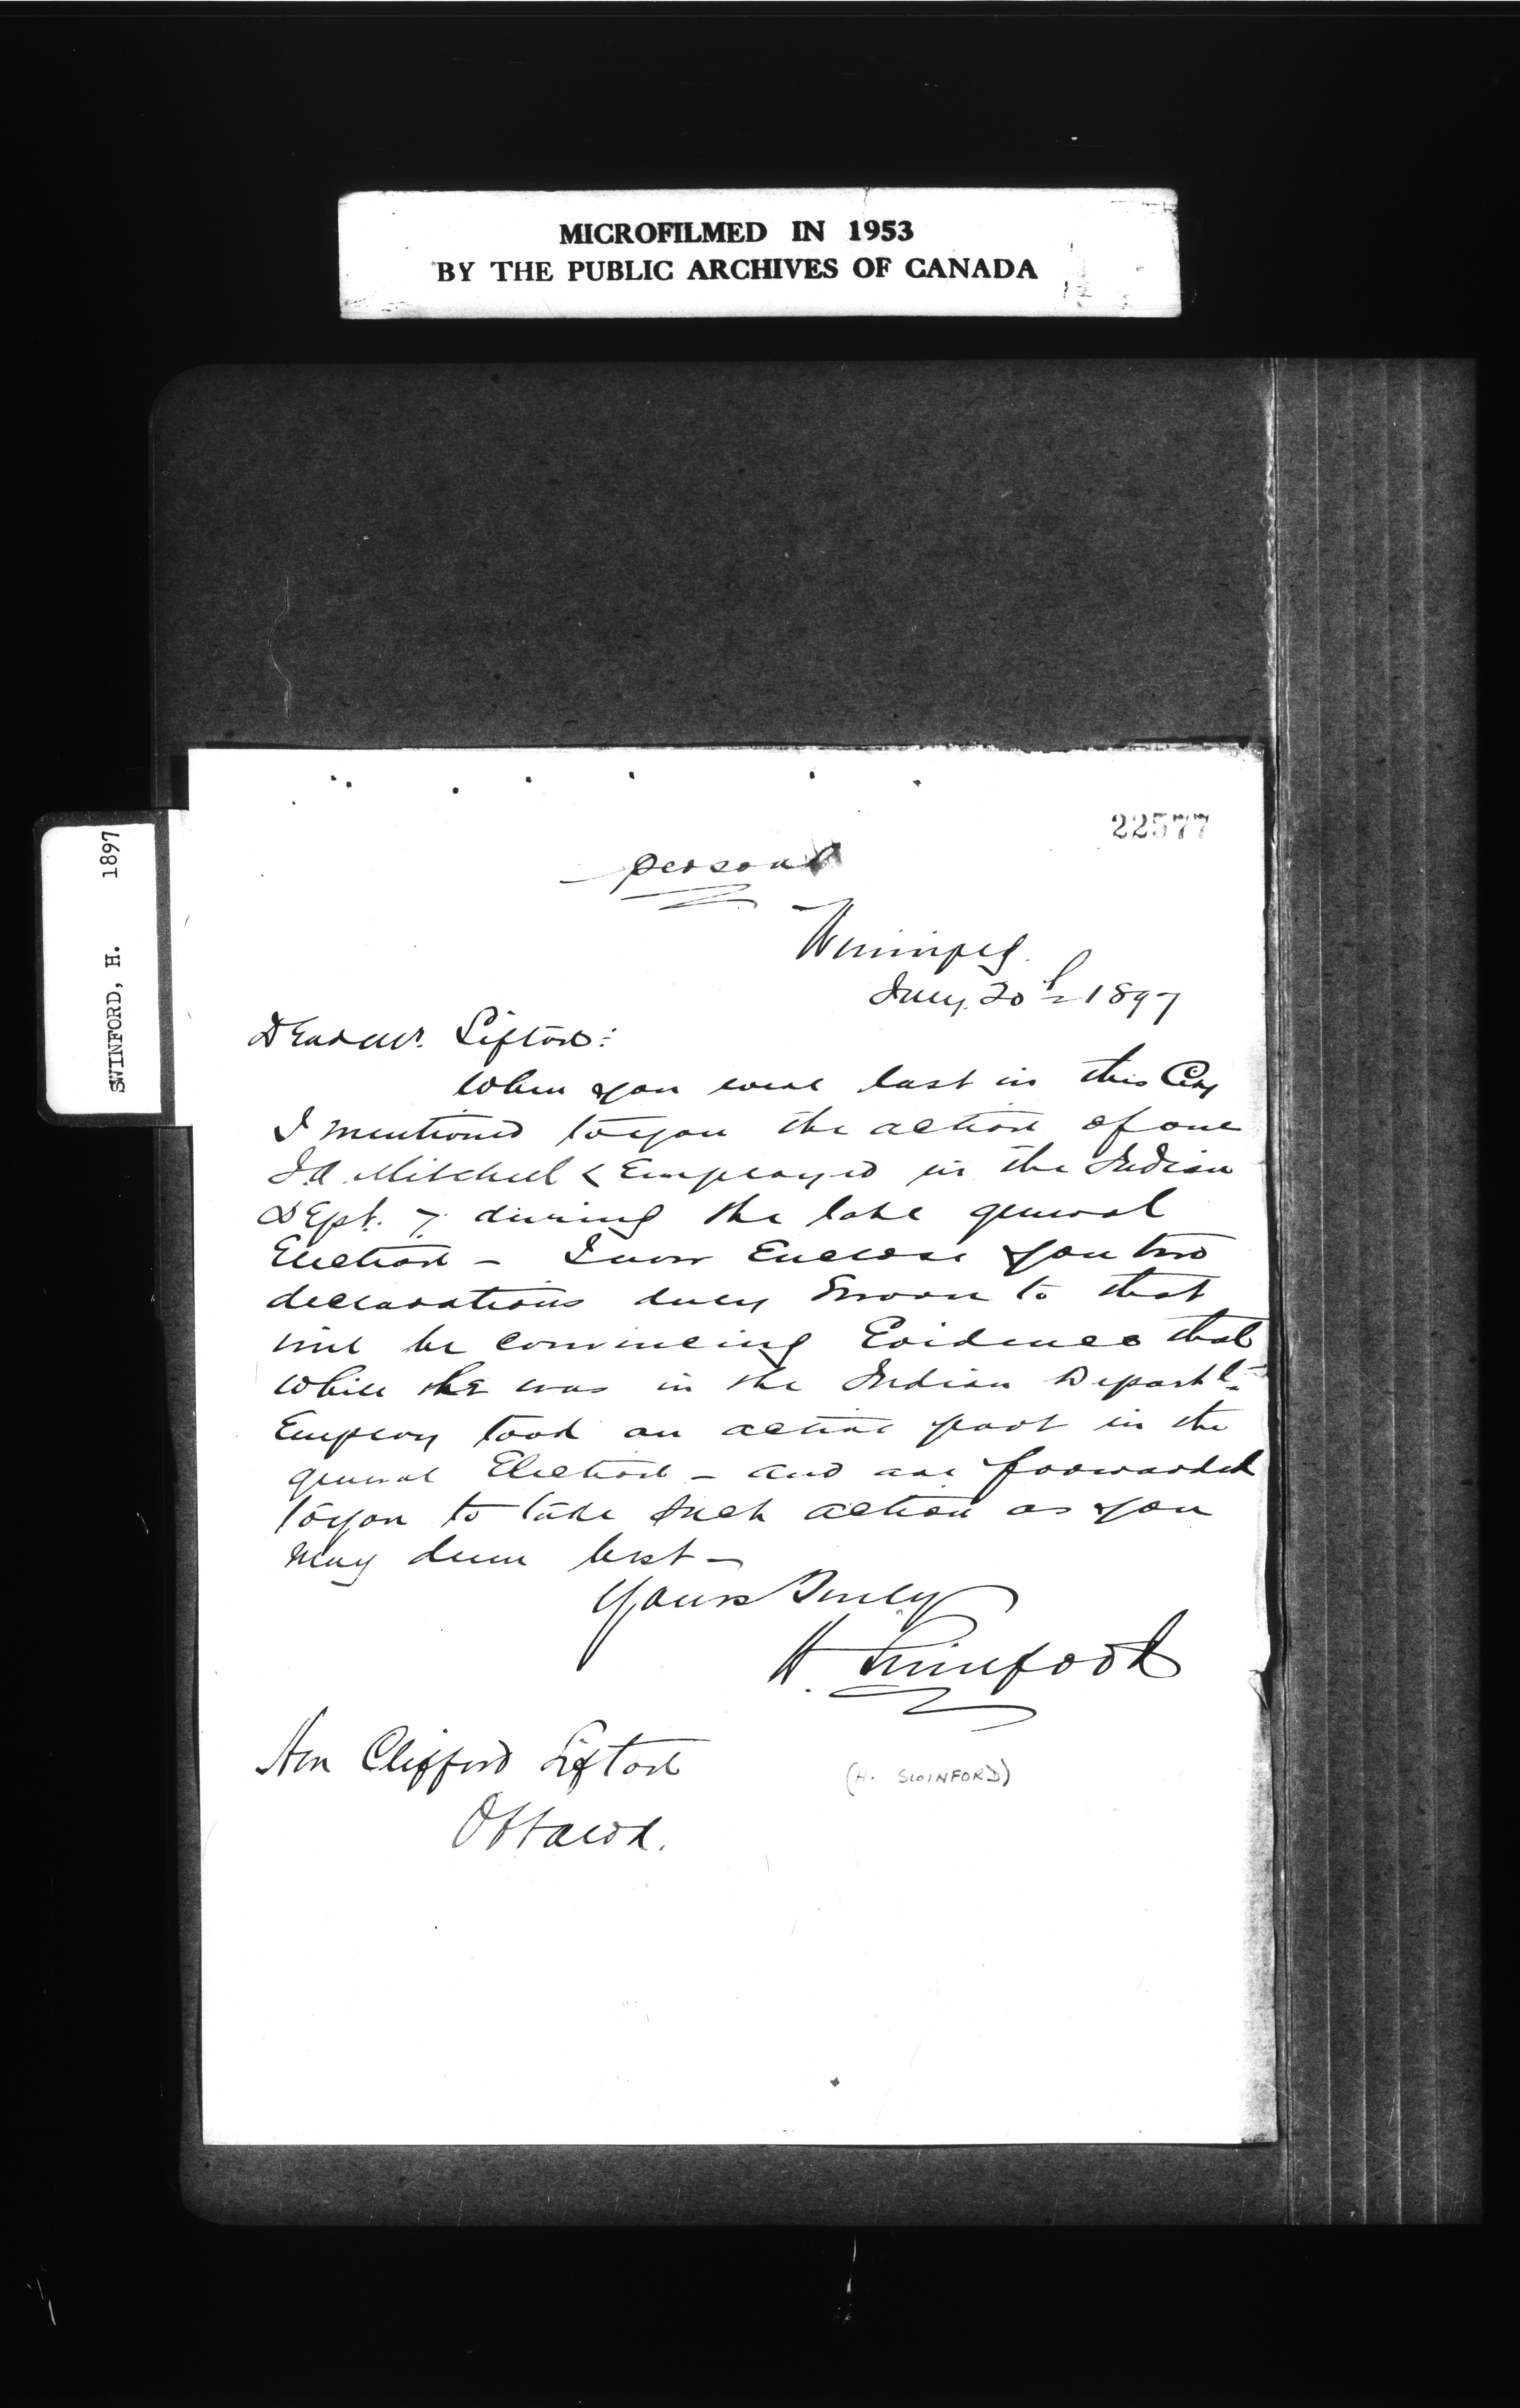 MICROFILMED IN 1953
BY THE PUBLIC ARCHIVES OF CANADA
SWINFORD, H. 1897
22577
personal
Winnipeg.
July, 20th 1897
Dear Mr. Sifton:
When you were last in this City
I mentioned to you the action of one
J.A. Mitchell < Employed in the Indian
DEpt. > during the late general
Election - I now Enclose you two
declarations duly Sworn to that
will be convincing Evidence that
while he was in the Indian Departt.
Employ took an active part in the
general Election - and are forwarded
to you to take such action as you
may deem best -
Yours Truly
H. Swinford
Hon Clifford Sifton
Ottawa.
(H. SWINFORD)